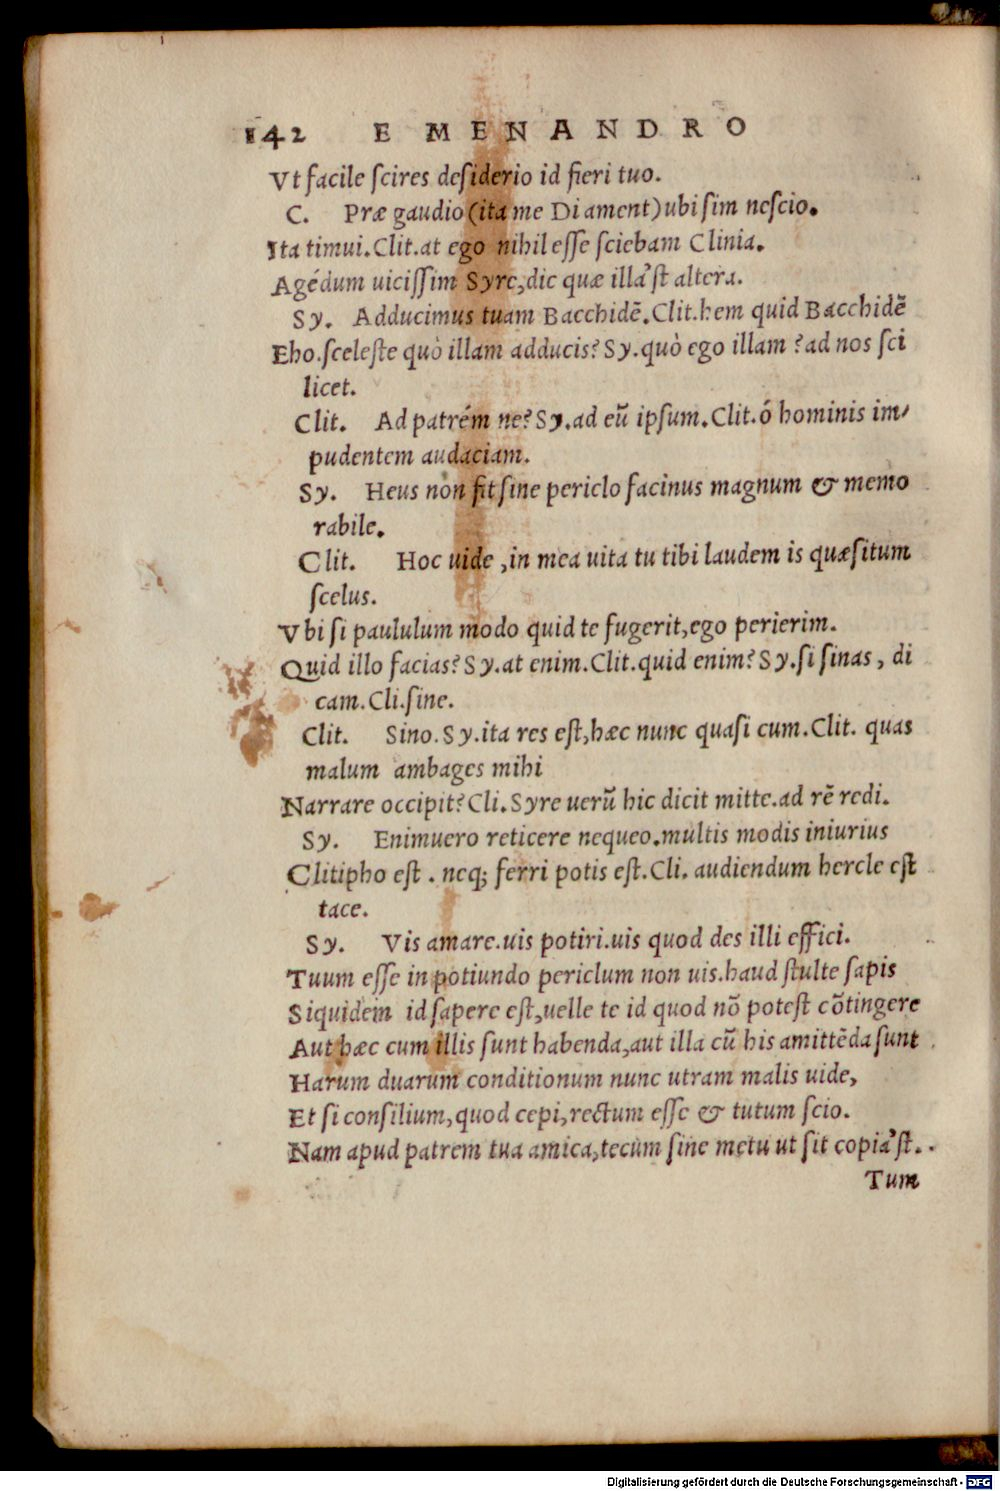 142 E MENANDRO
Vt facile ſcires deſiderio id fieri tuo.
C. Præ gaudio (ita me Di ament) ubi ſim neſcio.
Ita timui. Clit. at ego nihil eſſe ſciebam Clinia.
Agédum uiciſſim Syre, dic quæ illa'ſt altera.
Sy. Adducimus tuam Bacchidẽ. Clit. hem quid Bacchidẽ
Eho. ſceleſte quò illam adducis? Sy. quò ego illam ? ad nos ſci
licet.
Clit. Ad patrém ne? Sy. ad eũ ipſum. Clit. ó hominis im-
pudentem audaciam.
Sy. Heus non fit ſine periclo facinus magnum & memo
rabile.
Clit. Hoc uide, in mea uita tu tibi laudem is quæſitum
ſcelus.
Vbi ſi paululum modo quid te fugerit, ego perierim.
Quid illo facias? Sy. at enim. Clit. quid enim? Sy. ſi ſinas, di
cam. Cli. ſine.
Clit. Sino. Sy. ita res eſt, hæc nunc quaſi cum. Clit. quas
malum ambages mihi
Narrare occipit? Cli. Syre uerũ hic dicit mitte. ad rẽ redi.
Sy. Enimuero reticere nequeo. multis modis iniurius
Clitipho eſt. neq; ferri potis eſt. Cli. audiendum hercle eſt
tace.
Sy. Vis amare. uis potiri. uis quod des illi effici.
Tuum eſſe in potiundo periclum non uis. haud ſtulte ſapis
Siquidem id ſapere eſt, uelle te id quod nõ poteſt cõtingere
Aut hæc cum illis ſunt habenda, aut illa cũ his amittẽda ſunt
Harum duarum conditionum nunc utram malis uide,
Et ſi conſilium, quod cepi, rectum eſſe & tutum ſcio.
Nam apud patrem tua amica, tecum ſine metu ut ſit copia'ſt.
Tum
Digitalisierung gefördert durch die Deutsche Forschungsgemeinschaft - DFG